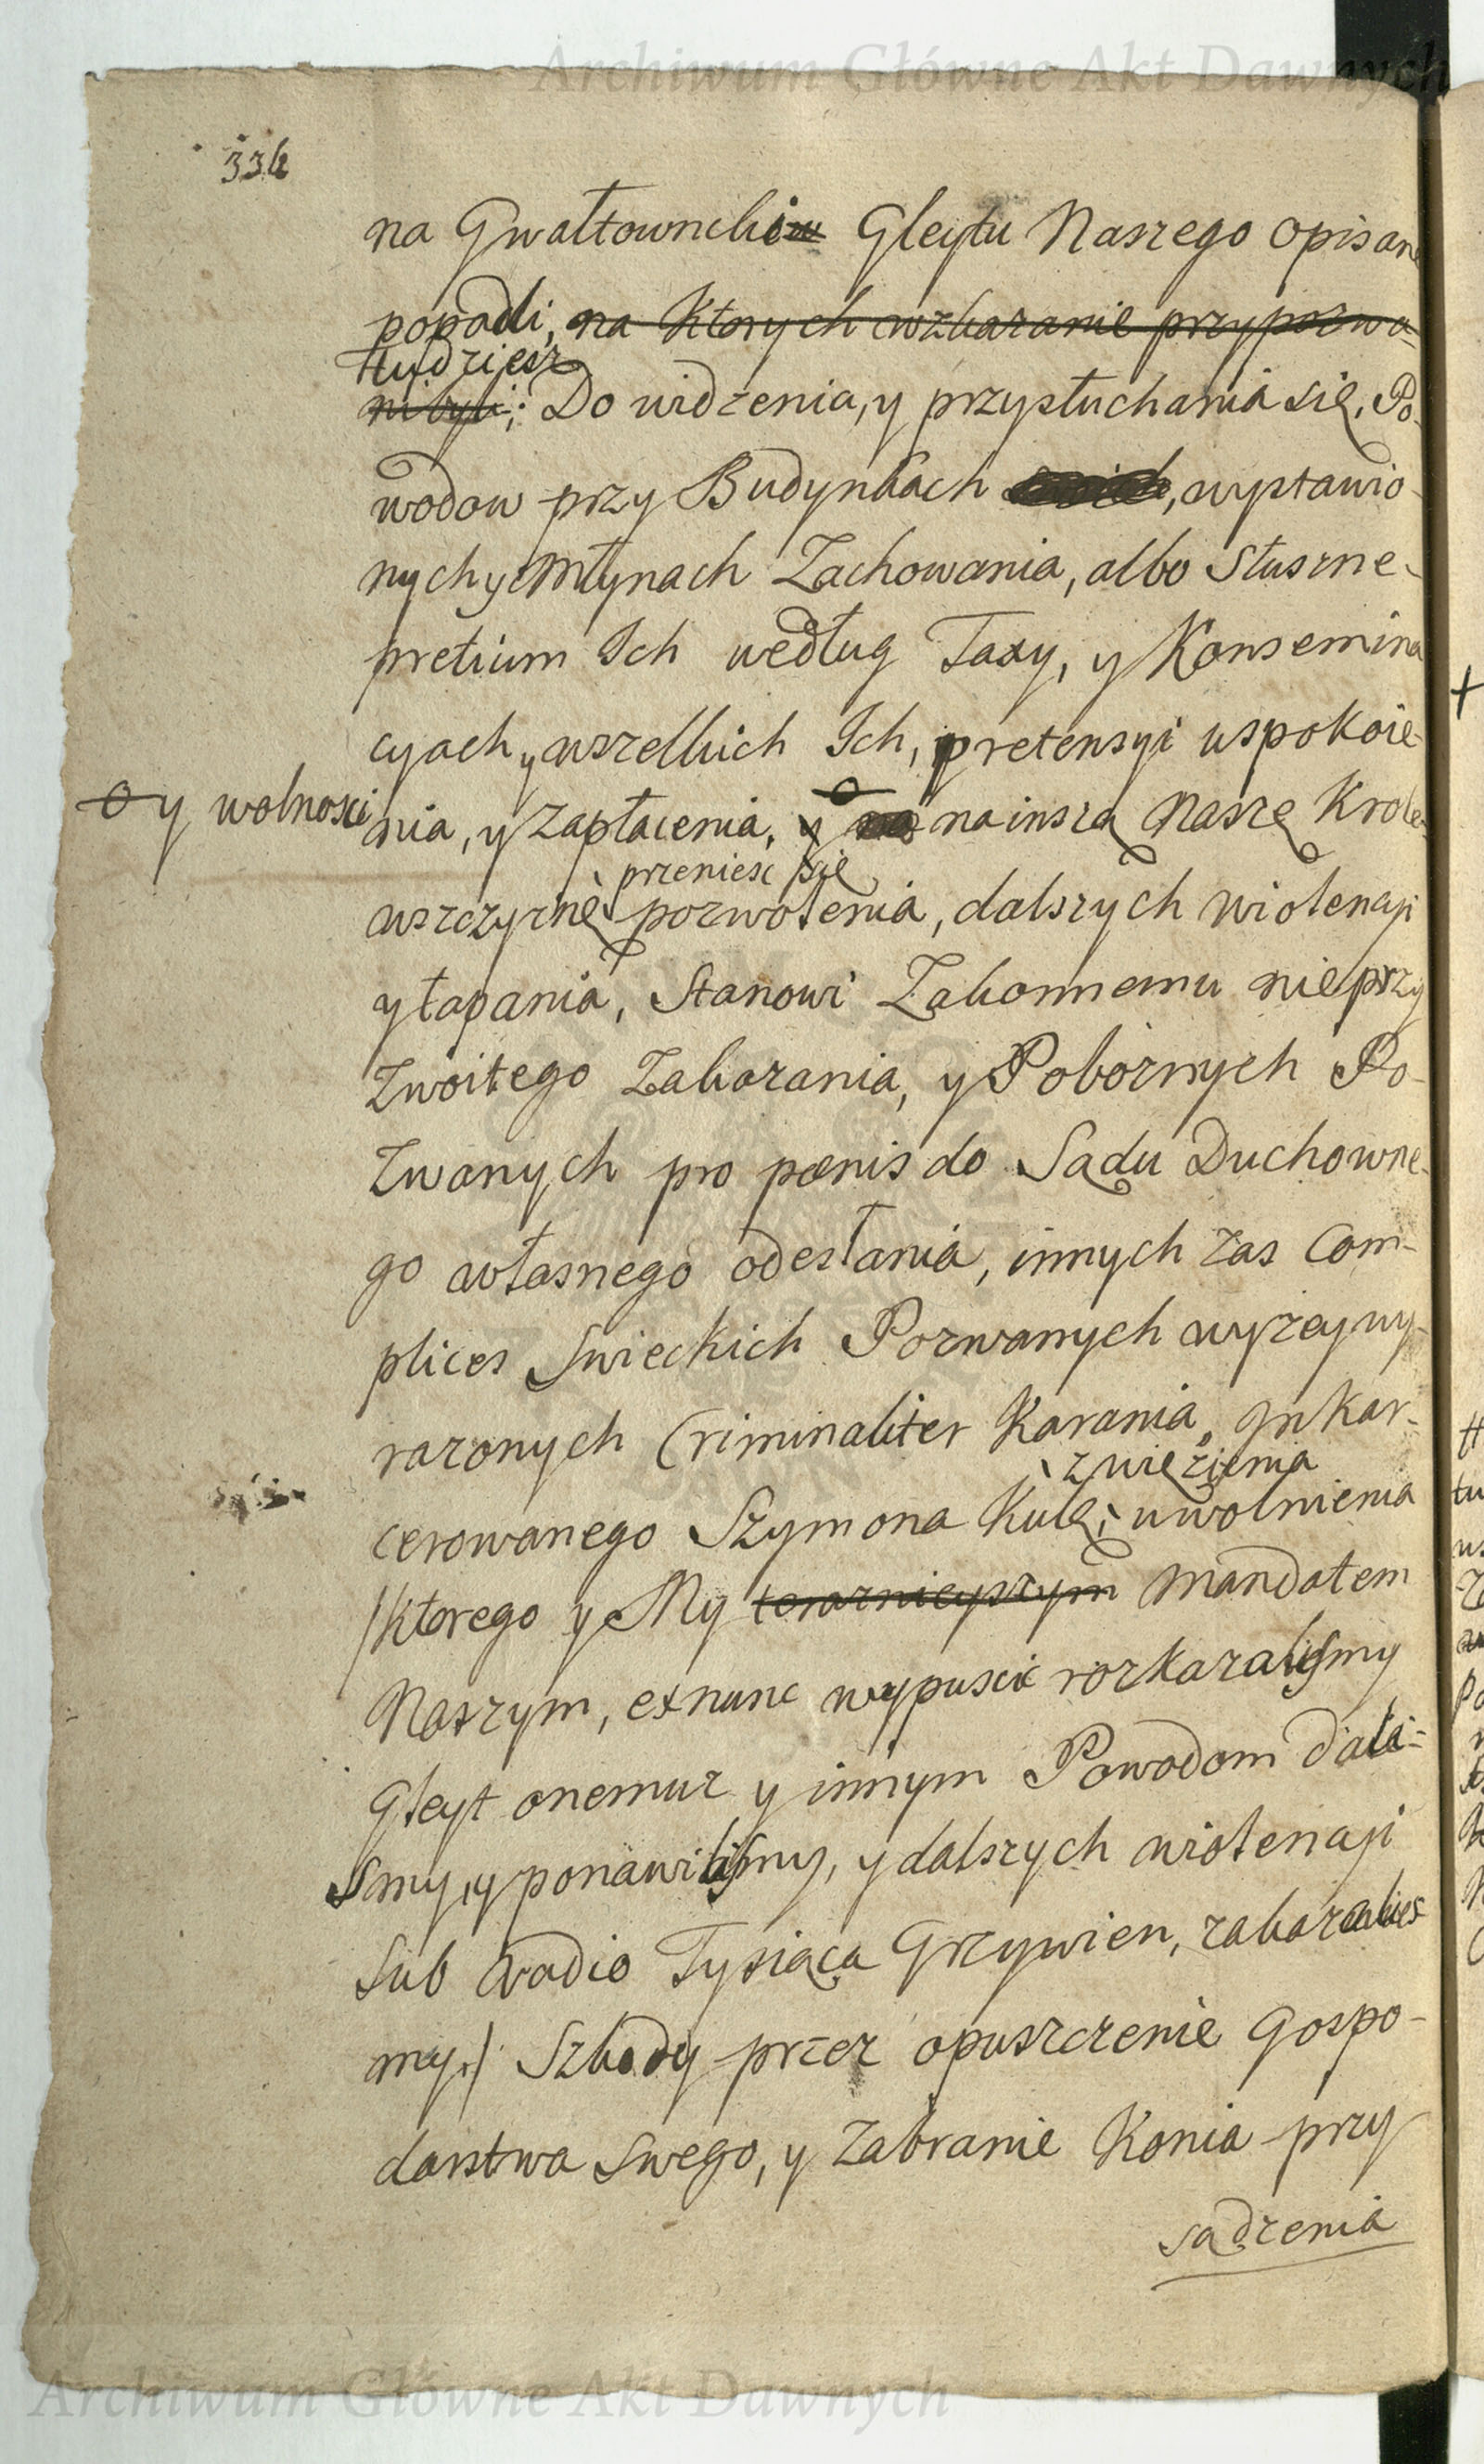 Archiwum Główne Akt Dawnych
334
na Gwałtowników Gleytu Naszego opisane
popadli, na ktorych wskazanie przypozwa-
Tudziesz
ni byli; Do widzenia, y przysłuchania się, Po-
wodow przy Budynkach wystawio-
nych y Młynach Zachowania, albo Słuszne-
pretium Ich według Taxy, y Konsemina
cyach, y wszelkich Ich, pretensyi uspokoie-
y wolnosci nia, y zapłacenia, y na na inszą Naszę Krole-
przeniesc się
wszczyznę pozwolenia, dalszych wiolencyi
y łapania, Stanowi Zakonnemu nieprzy
zwoitego Zakazania, y Pobożnych Po-
zwanych pro pœnis do Sądu Duchowne-
go własnego odesłania, innych zas Com-
plices Swieckich Pozwanych wyzey wy-
razonych Criminaliter Karania, Inkar-
z więzięnia
cerowanego Szymona Kulę, uwolnienia
/ktorego y My teraznieyszym Mandatem
Naszym, exnunc wypuscic rozkazalismy
Gleyt onemuz y innym Powodom dali-
smy, y ponawilismy, y dalszych wiolencyi
Sub vadio Tysiąca Grzywien, zakazalies
my./ Szkody przez opuszczenie Gospo-
darstwa swego, y Zabranie Konia przy
sądzenia
Archiwum Główne Akt Dawnych